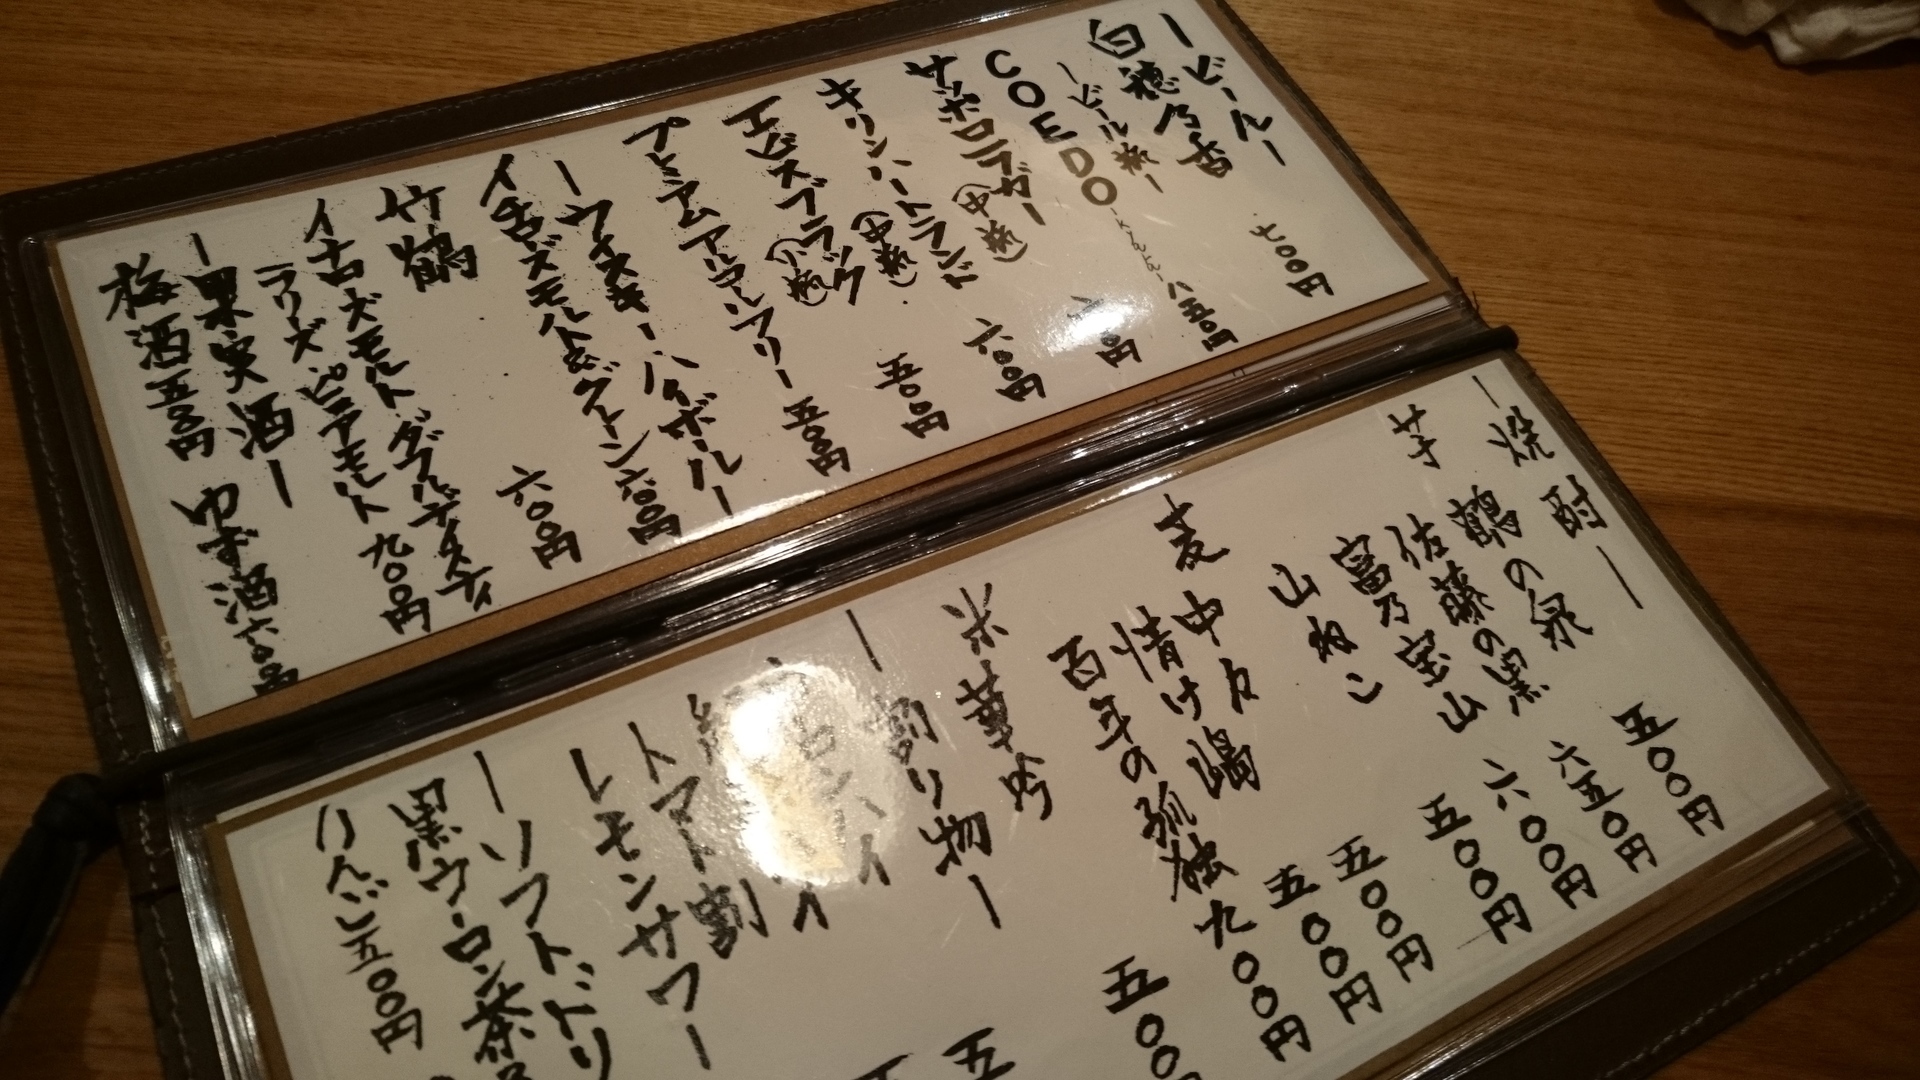 ービールー
白穂乃香 七〇〇円
ービール瓶ー
COEDO 八五〇円
サッポロラガー(中瓶) 〇円
キリンハートランド(中瓶) 六〇〇円
エビスブラック(小瓶) 五〇〇円
プレミアムアルコールフリー 五〇〇円
ーウイスキーハイボールー
イチローズモルト&グレーン 六〇〇円
竹鶴 六〇〇円
イチローズモルト ダブルディスティ
ラリーズ・ピュアモルト 九〇〇円
ー果実酒ー
梅酒 五〇〇円 ゆず酒 六〇〇円
ー焼酎ー
芋 鶴の泉 五〇〇円
佐藤の黒 六五〇円
富乃宝山 六〇〇円
山ねこ 五〇〇円
麦 中々 五〇〇円
情け嶋 五〇〇円
百年の孤独 九〇〇円
米 華吟 五〇〇
ー割り物ー
トマト割
レモンサワー
ーソフトドリ
黒ウーロン茶
りんご 五〇〇円